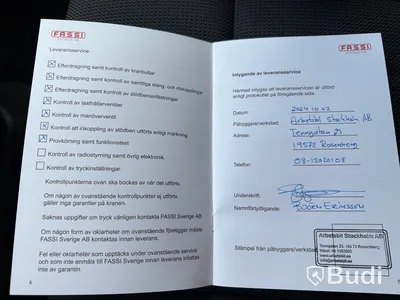 FASSI
Leveransservice
Efterdragning samt kontroll av kranbultar
Efterdragning samt kontroll av samtliga slang- och rörkopplingar
Efterdragning samt kontroll av stödbensinfästningar
Kontroll av lasthållarventiler
Kontroll av manöverventil
Kontroll att inkoppling av stödben utförts enligt märkning
Provkörning samt funktionstest
Kontroll av radiostyrning samt övrig elektronik.
Kontroll av tryckinställningar.
Kontrollpunkterna ovan ska bockas av när det utförts.
Om någon av ovanstående kontrollpunkter ej utförts
gäller inga garantier på kranen.
Saknas uppgifter om tryck vänligen kontakta FASSI Sverige AB.
Om någon form av oklarheter om ovanstående föreligger måste
FASSI Sverige AB kontaktas innan leverans.
Fel eller oklarheter som upptäcks under ovanstående service
och som inte anmäls till FASSI Sverige innan leverans innefattas
inte av garantin.
4
FASSI
Intygande av leveransservice
Härmed intygas att leveransservicen är utförd
enligt protokollet på föregående sida.
Datum: 2024 10 02
Påbyggare/verkstad: Arbetsbil Stockholm AB
Adress: Tenngatan 23
19572 Rosersberg
Telefon: 08-12020105
Underskrift:
Namnförtydligande: BJÖRN ERIKSSON
Stämpel från påbyggare/verkstad:
Arbetsbil Stockholm AB
Tenngatan 23, 195 72 Rosersberg
www.arbetsbil.se
Budi